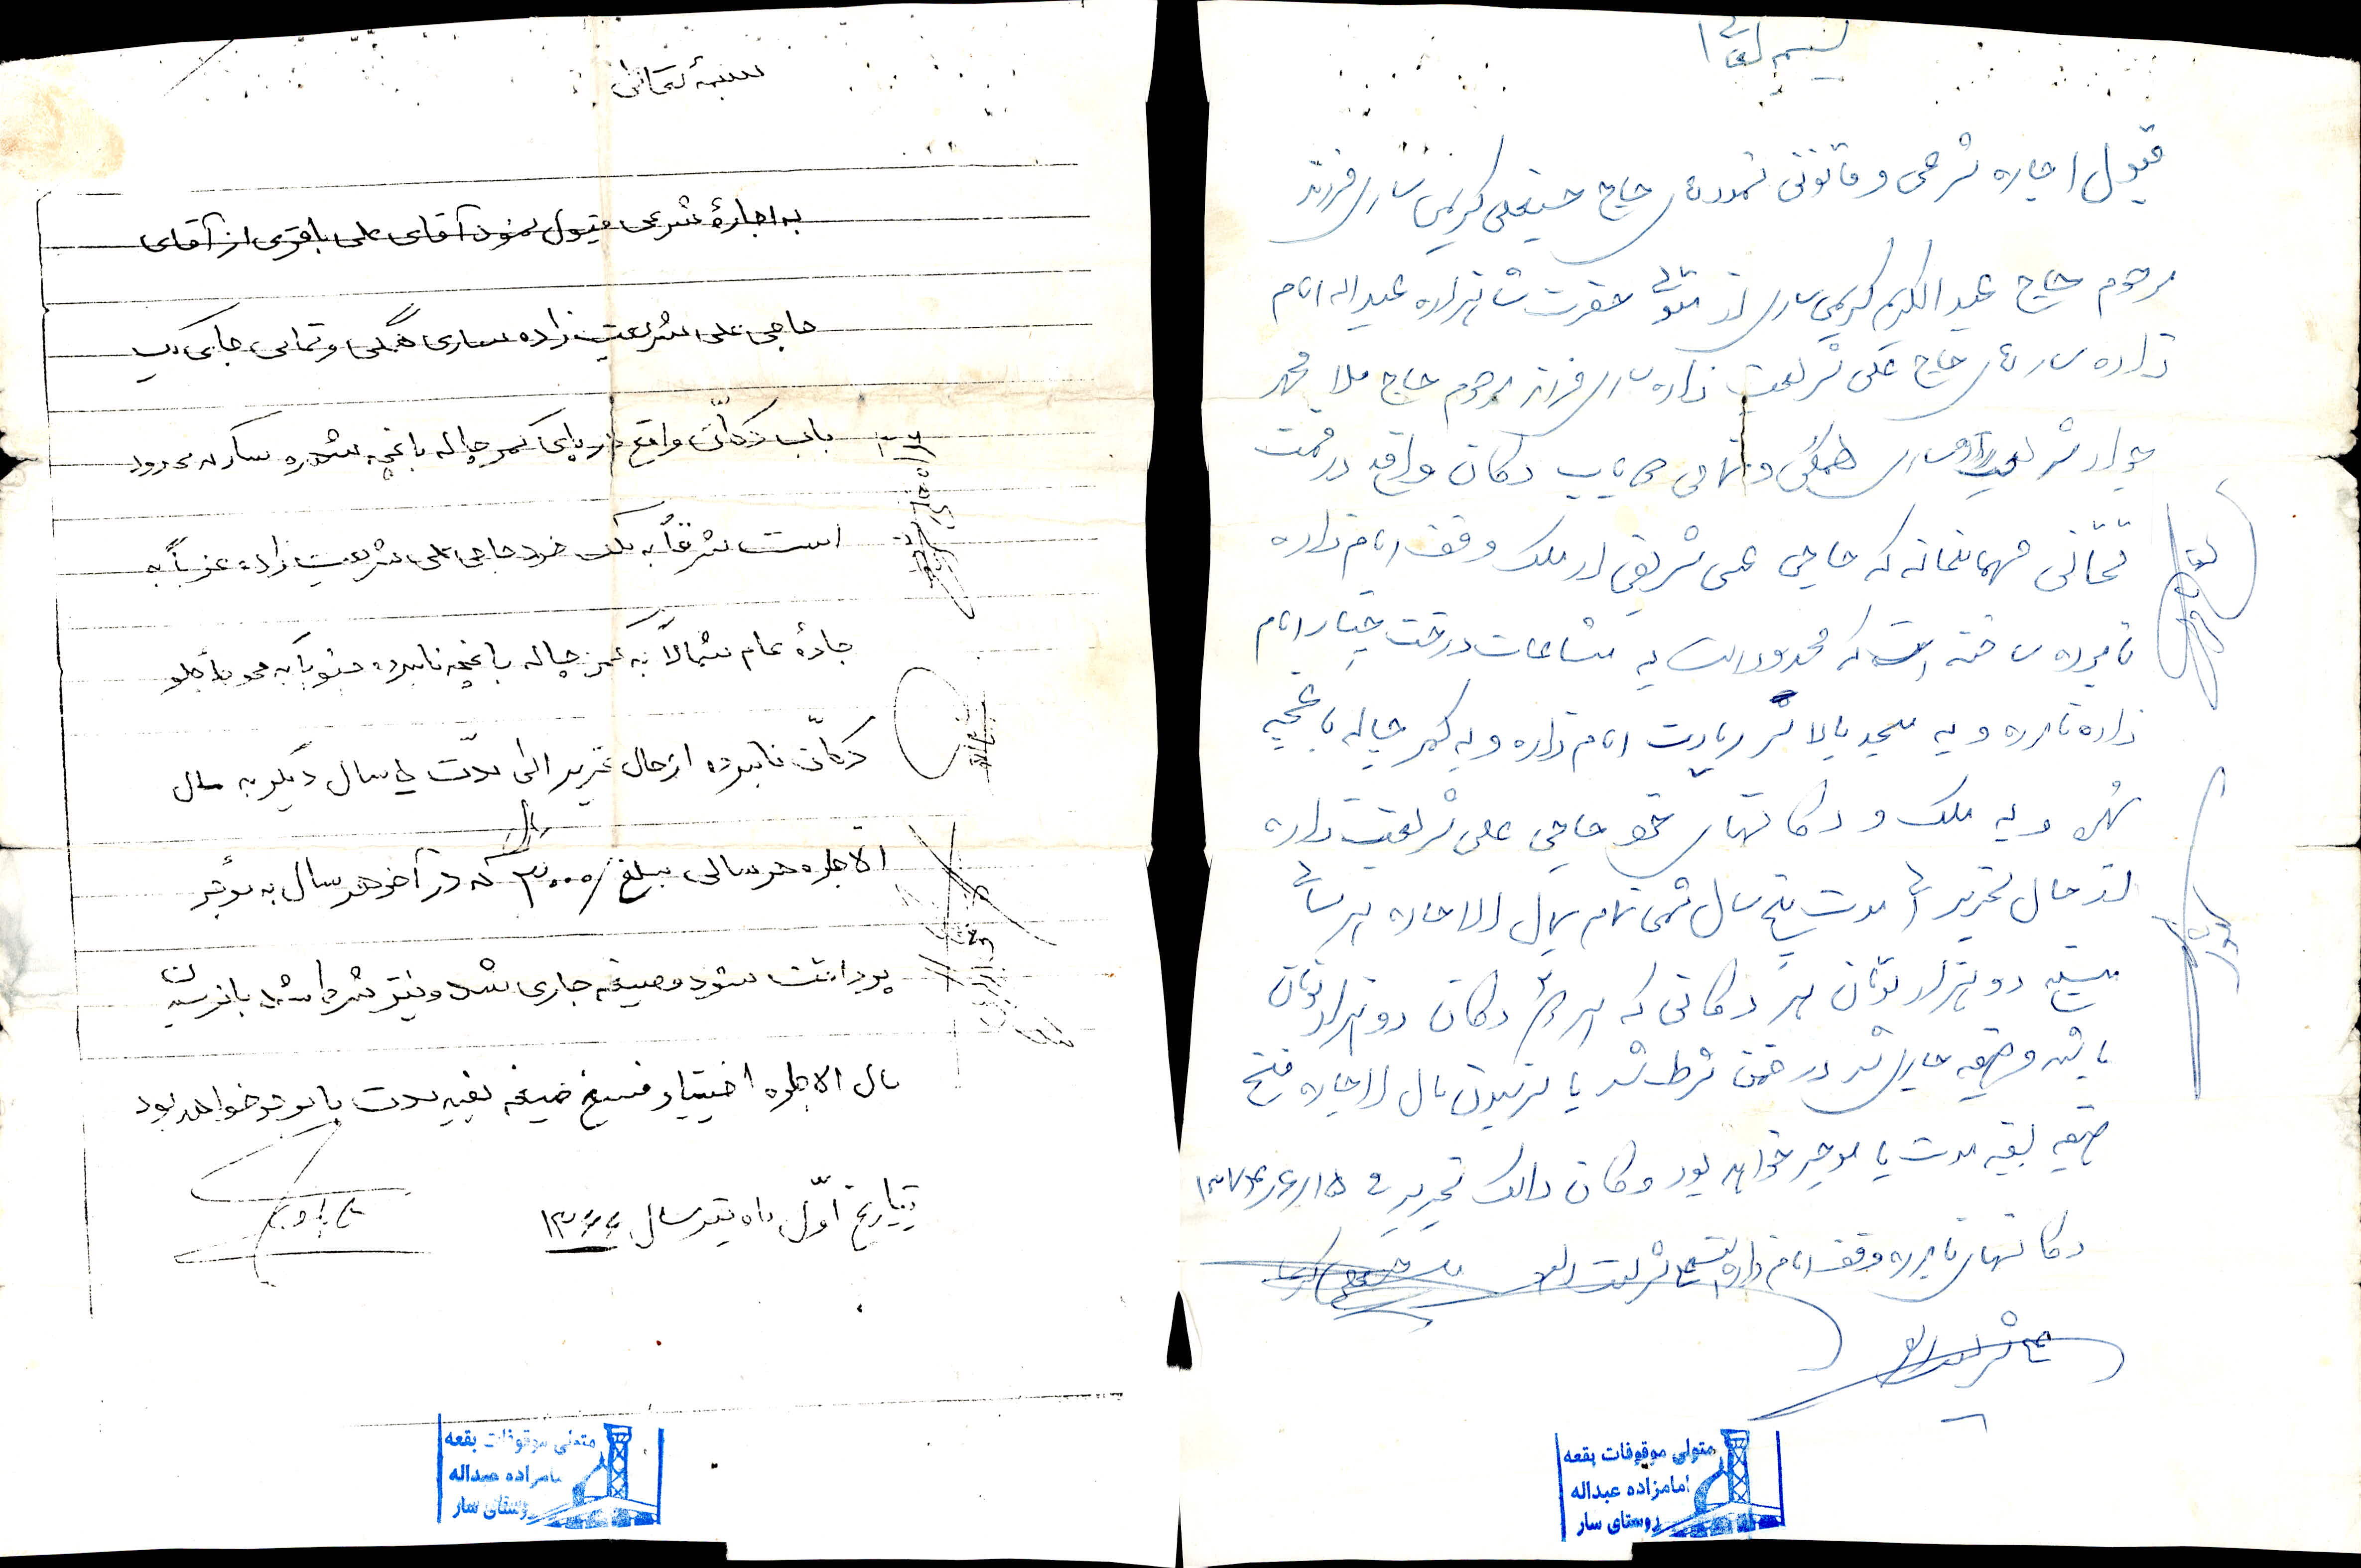 بسمه تعالی
قبول اجاره شرعی و قانونی نمود آقای حاج حسینعلی کریمی ساری فرزند
مرحوم حاج عبدالکریم کریمی ساری از متولی حضرت شاهزاده عبداله امام
زاده سار آقای حاج علی شریعت زاده ساری فرزند مرحوم حاج ملا محمد
جواد شریعت زاده ساری همگی و تمامی باب دکان واقع در قسمت
تحتانی مهمانخانه که حاجی علی شریعتی در ملک وقف امام زاده
نامبرده ساخته است که محدود است به مشاعات درخت چنار امام
زاده نامبرده و به مسجد بالا سر زیارت امام زاده و به کمر چاله باغچه
شهره و به ملک و دکانهای خود حاجی علی شریعت زاده
از حال تحریر الی مدت پنج سال شمسی تمام بمال الاجاره هر سالی
مبلغ دو هزار تومان هر دکانی که هر دکان دو هزار تومان
باشد و صیغه جاری شد در ضمن شرط شد با نرسیدن مال الاجاره فسخ
صیغه بقیه مدت با موجر خواهد بود و کان ذالک تحریر فی
دکانهای نامبرده وقف امام زاده
متولی موقوفات بقعه
امامزاده عبداله
روستای سار
بسمه تعالی
به اجارهٔ شرعی قبول نمود آقای علی باقری از آقای
حاجی علی شریعت زاده ساری همگی و تمامی جای یک
باب دکّان واقع در پای کمر چاله باغچه شهره سار که محدود
است شرقاً به ملک خود حاجی علی شریعت زاده غرباً به
جادهٔ عام شمالاً به کمر چاله باغچه نامبرده جنوباً به محوطهٔ جلو
دکّان نامبرده از حال تحریر الی مدّت سال دیگر به مال
الاجاره هر سالی مبلغ ۳۰۰۰/ ریال که در آخر هر سال به موجر
پرداخت شود و صیغه جاری شد و نیز شرط شد با نرسیدن
مال الاجاره اختیار فسخ صیغه بقیه مدت با موجر خواهد بود
بتاریخ اوّل ماه تیر سال
متولی موقوفات بقعه
امامزاده عبداله
روستای سار